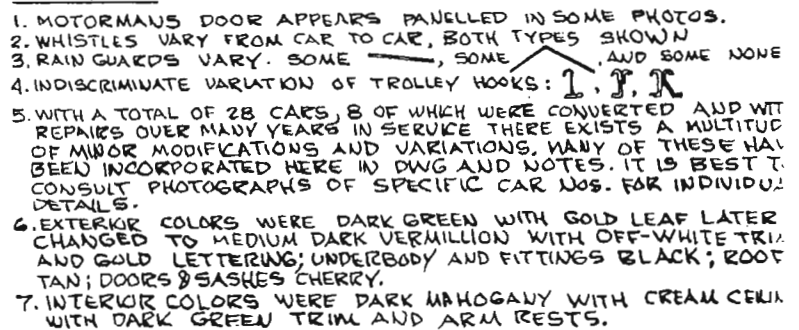 1. MOTORMANS DOOR APPEARS PANELLED IN SOME PHOTOS.
2. WHISTLES VARY FROM CAR TO CAR, BOTH TYPES SHOWN
3. RAIN GUARDS VARY. SOME , SOME , AND SOME NONE
4. INDISCRIMINATE VARIATION OF TROLLEY HOOKS:
5. WITH A TOTAL OF 28 CARS, 8 OF WHICH WERE CONVERTED AND WIT
REPAIRS OVER MANY YEARS IN SERVICE THERE EXISTS A MULTITUD
OF MINOR MODIFICATIONS AND VARIATIONS. MANY OF THESE HAV
BEEN INCORPORATED HERE IN DWG AND NOTES. IT IS BEST T
CONSULT PHOTOGRAPHS OF SPECIFIC CAR NOS. FOR INDIVIDU
DETAILS.
6. EXTERIOR COLORS WERE DARK GREEN WITH GOLD LEAF LATER
CHANGED TO MEDIUM DARK VERMILLION WITH OFF-WHITE TRI
AND GOLD LETTERING; UNDERBODY AND FITTINGS BLACK; ROOF
TAN; DOORS & SASHES CHERRY.
7. INTERIOR COLORS WERE DARK MAHOGANY WITH CREAM CEILIN
WITH DARK GREEN TRIM AND ARM RESTS.